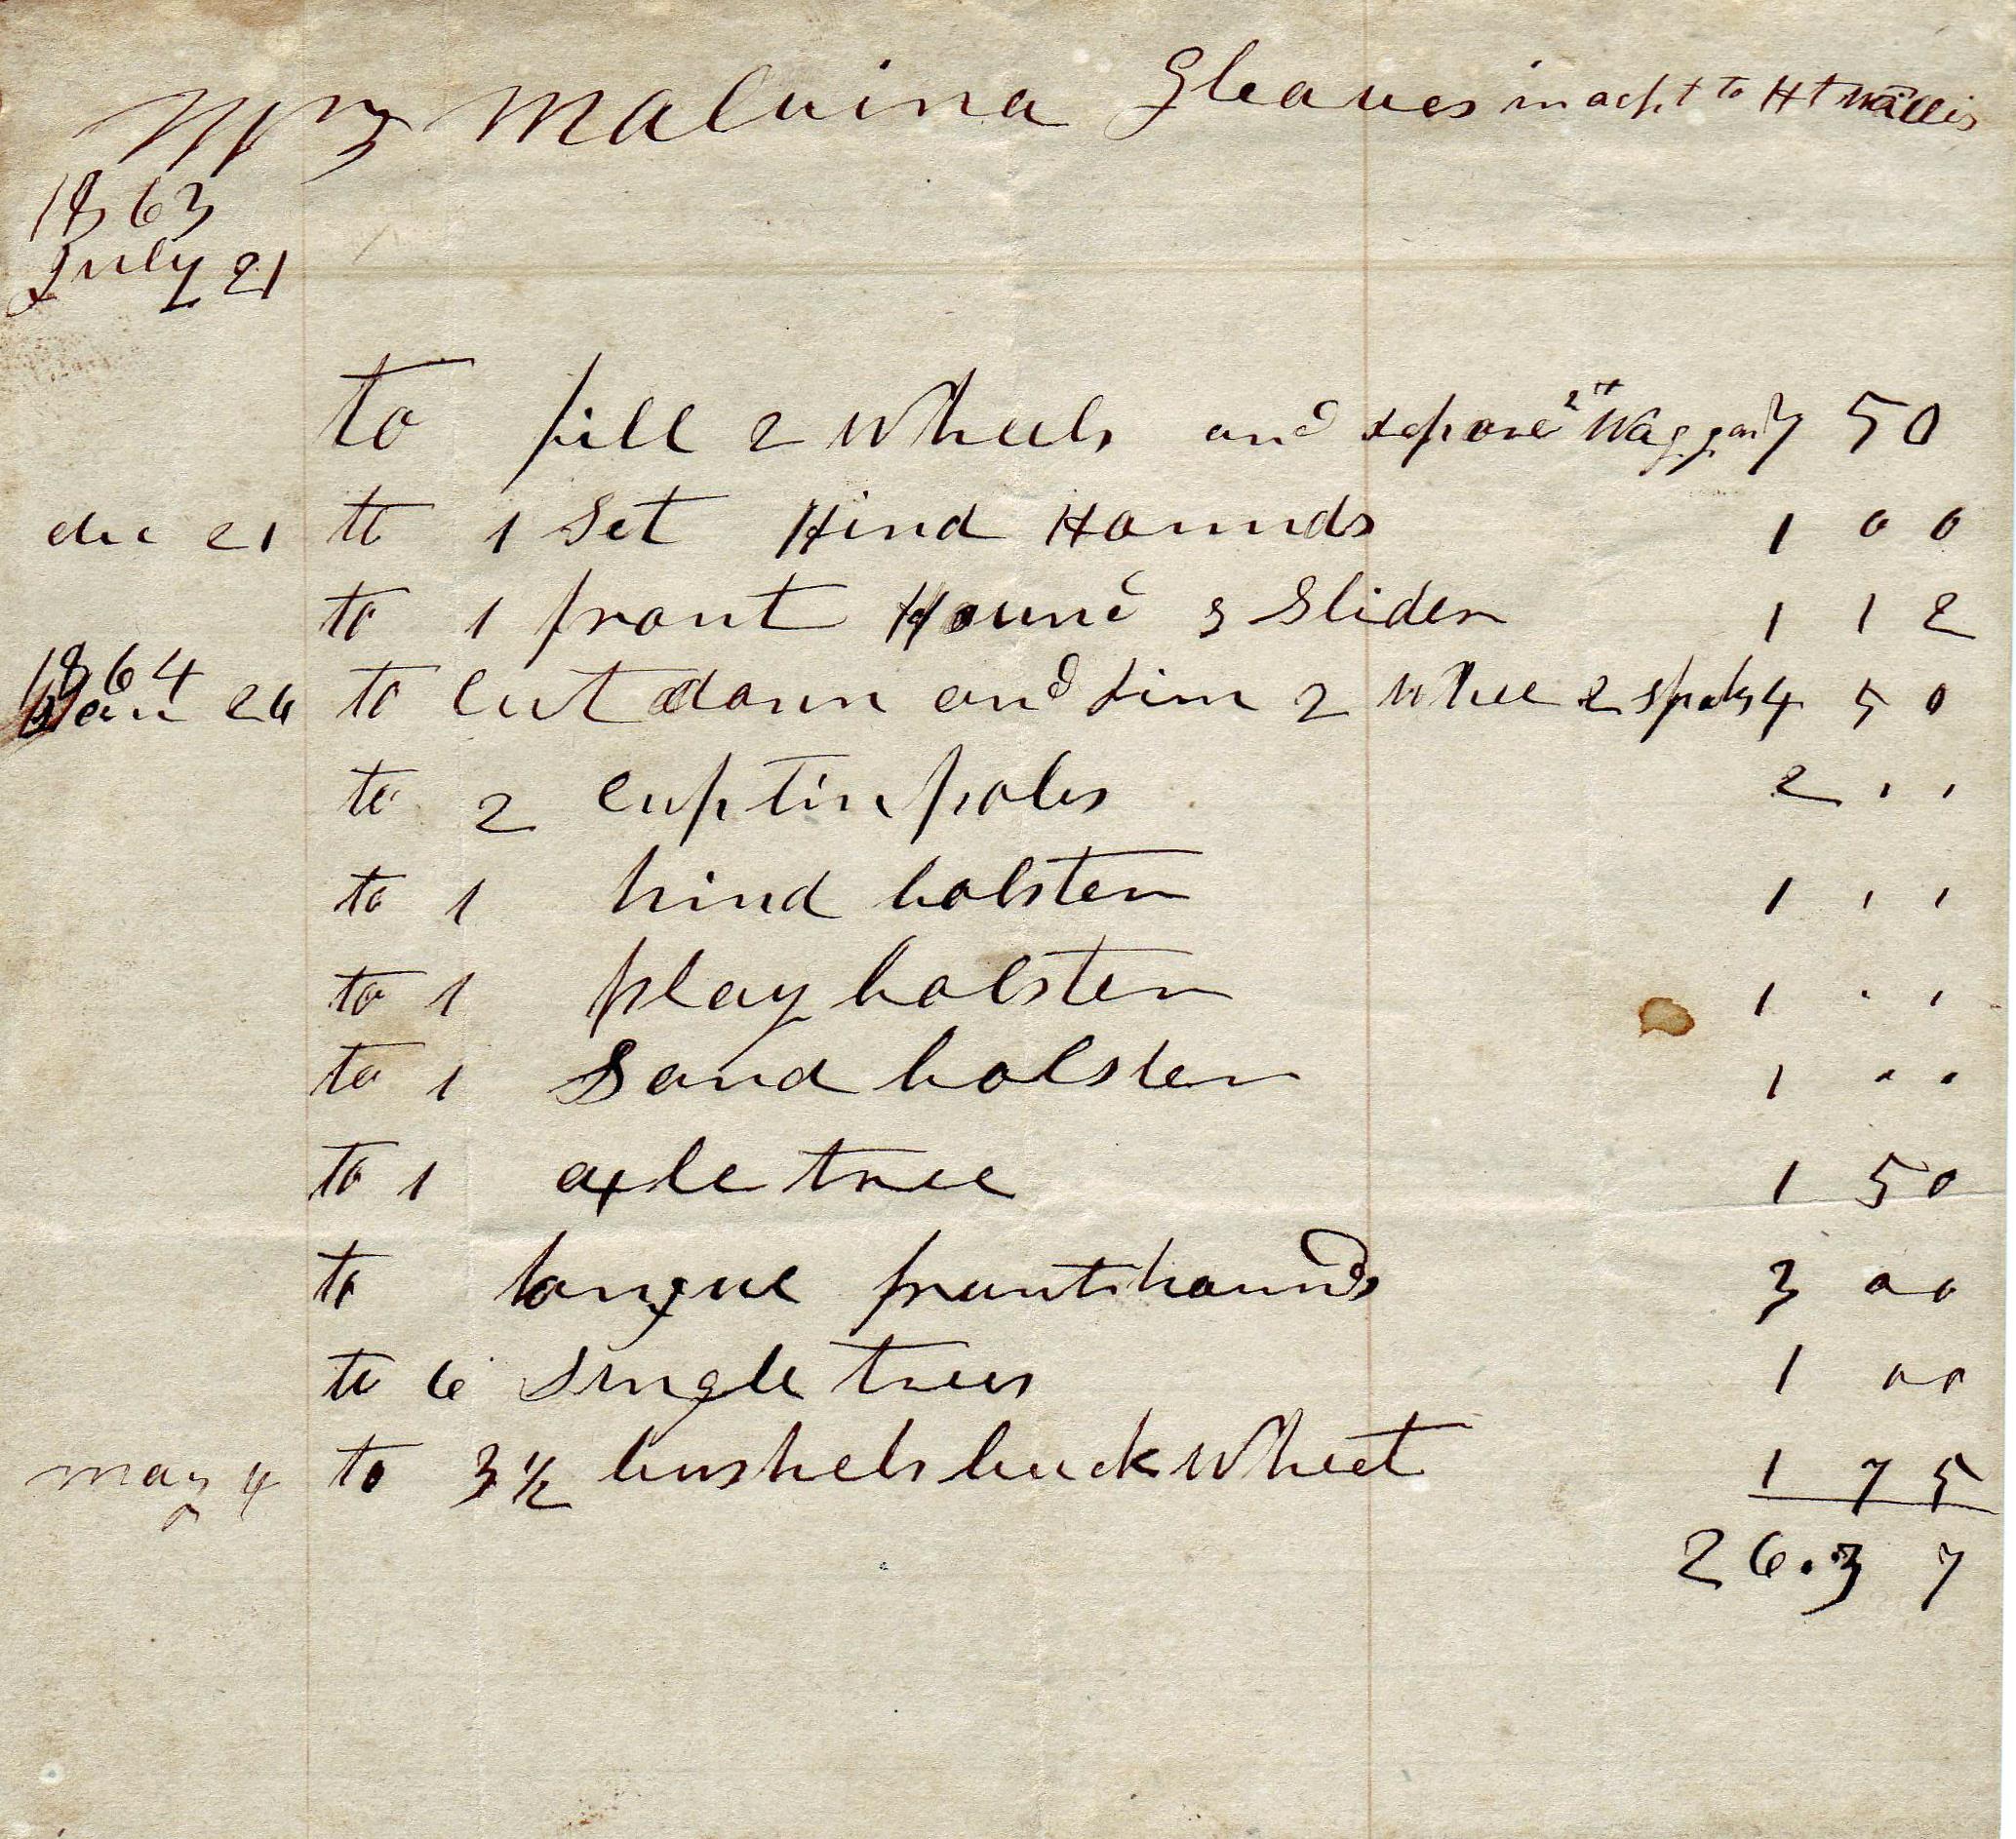 Mrs Malvina Gleaves in acpt to H t Wallis
1863
July 21
to fill 2 Wheels and repare 2 H Waggon 7 50
dec 21 to 1 Set Hind Hounds 1 00
to 1 front Hound & Slider 1 12
1864
Jan 26 to cut down and rim 2 Whee 2 spoks 4 50
to 2 cuptin poles 2 , ,
to 1 hind bolster 1 , ,
to 1 play bolster 1 . ,
to 1 Sand bolster 1 . .
to 1 axle tree 1 50
to tongue frunt hounds 3 00
to 6 single trees 1 00
may 4 to 3 1/2 bushels buck Wheet 1 75
26.37